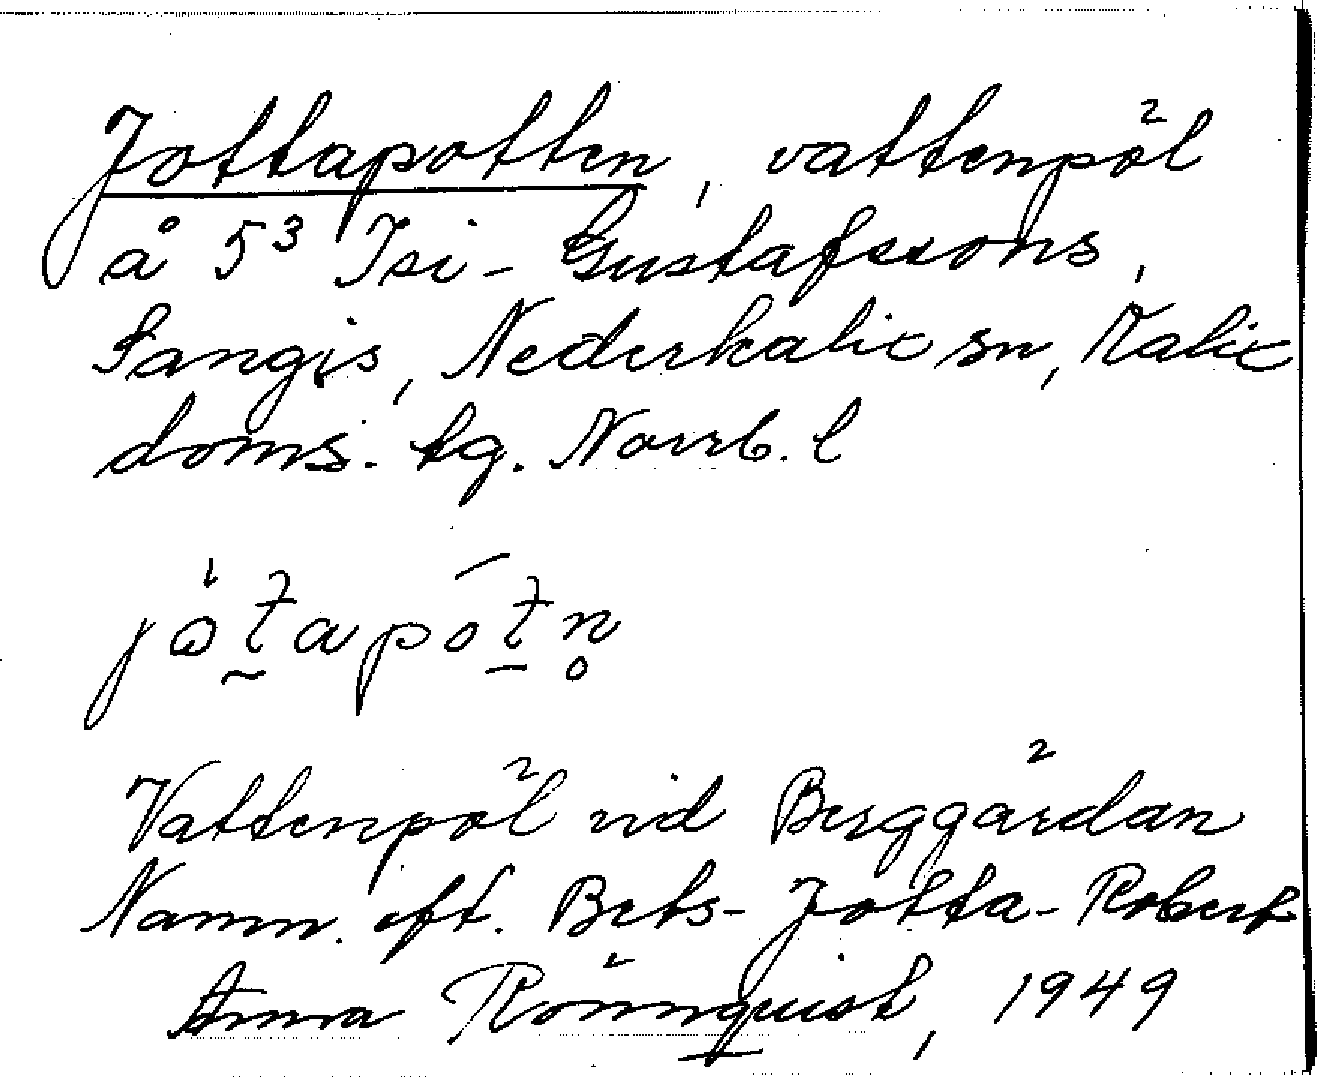 Jottapotten, vattenpöl
å 5³ Isi-Gustafssons,
Sangis, Nederkalix sn, Kalix
doms. tg. Norrb. l
jòt̰apót̠n̥
Vattenpöl vid Berggårdan
Namn. eft. Bets-Jotta-Robert
Anna Rönnquist, 1949